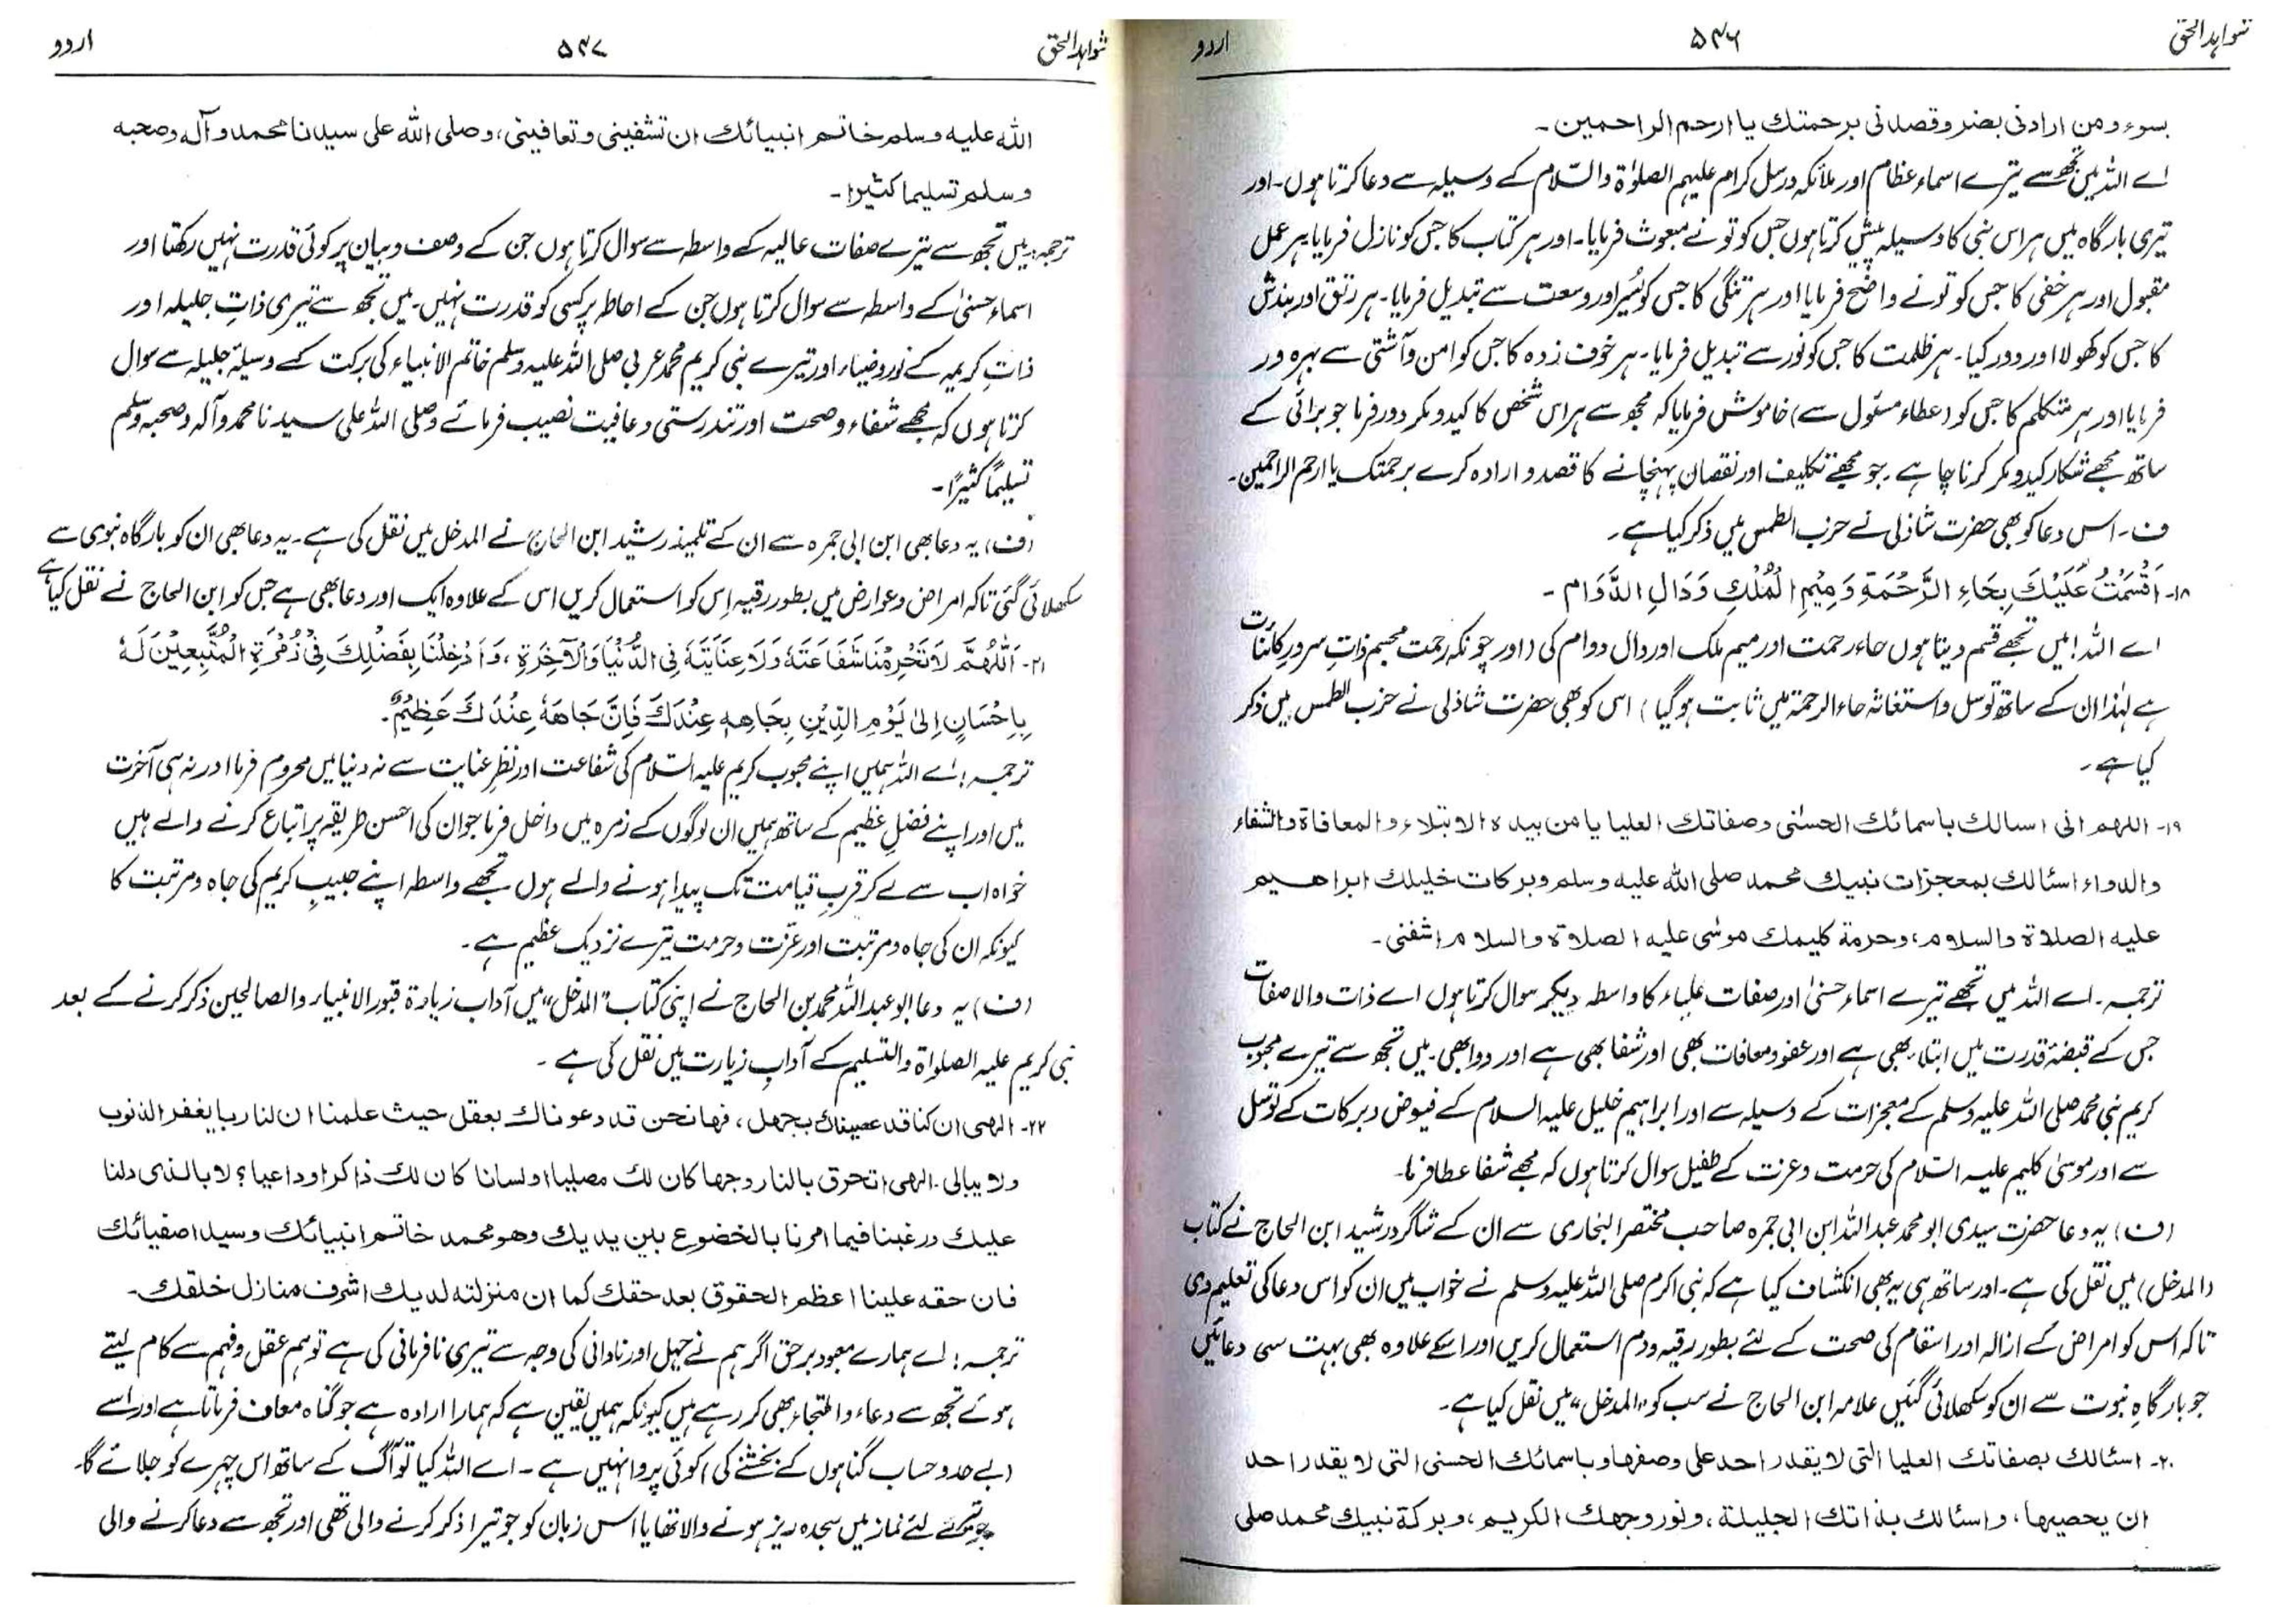 شواہد الحق ۵۴۶ اردو
بسوء ومن ارادنی بضر وقصدنی برحمتك یا ارحم الراحمین۔
اے اللہ میں تجھ سے تیرے اسماء عظام اور ملائکہ ورسل کرام علیہم الصلوٰۃ والسّلام کے وسیلہ سے دعا کرتا ہوں۔ اور
تیری بارگاہ میں ہر اس نبی کا وسیلہ پیش کرتا ہوں جس کو تو نے مبعوث فرمایا۔ اور ہر کتاب کا جس کو نازل فرمایا ہر عمل
مقبول اور ہر خفی کا جس کو تونے واضح فرمایا اور ہر تنگی کا جس کو یُسر اور وسعت سے تبدیل فرمایا۔ ہر رتق اور بندش
کا جس کو کھولا اور دور کیا۔ ہر ظلمت کا جس کو نور سے تبدیل فرمایا۔ ہر خوف زدہ کا جس کو امن وآشتی سے بہرہ ور
فرمایا اور ہر متکلم کا جس کو (عطاء مسئول سے) خاموش فرمایا کہ مجھ سے ہر اس شخص کا کید و مکر دور فرما جو برائی کے
ساتھ مجھے شکار کید و مکر کرنا چاہے۔ جو مجھے تکلیف اور نقصان پہنچانے کا قصد و ارادہ کرے برحمتک یا ارحم الراحمین۔
ف۔ اس دعا کو بھی حضرت شاذلی نے حزب الطمس میں ذکر کیا ہے۔
۱۸۔ اَقْسَمْتُ عَلَیْكَ بِحَاءِ الرَّحْمَةِ وَمِیْمِ الْمُلْكِ وَدَالِ الدَّوَام ۔
اے اللہ! میں تجھے قسم دیتا ہوں حاء رحمت اور میم ملک اور دال دوام کی (اور چونکہ رحمت مجسم ذاتِ سرور کائنات
ہے لہٰذا ان کے ساتھ توسل و استغاثہ حاء الرحمۃ میں ثابت ہوگیا) اس کو بھی حضرت شاذلی نے حزب الطمس میں ذکر
کیا ہے۔
۱۹۔ اللهم انی اسالك باسمائك الحسنٰی وصفاتك العلیا یا من بیده الابتلاء والمعافاة والشفاء
والدواء اسئالك بمعجزات نبیك محمد صلی الله علیه وسلم وبركات خلیلك ابراهیم
علیه الصلاة والسلام، وحرمة كلیمك موسٰی علیه الصلاة والسلام اشفنی۔
ترجمہ۔ اے اللہ میں تجھے تیرے اسماء حسنیٰ اور صفات علیاء کا واسطہ دیکر سوال کرتا ہوں اے ذات والا صفات
جس کے قبضۂ قدرت میں ابتلاء بھی ہے اور عفو ومعافات بھی اور شفا بھی ہے اور دوا بھی۔ میں تجھ سے تیرے محبوب
کریم نبی محمد صلی اللہ علیہ وسلم کے معجزات کے وسیلہ سے اور ابراہیم خلیل علیہ السلام کے فیوض و برکات کے توسل
سے اور موسیٰ کلیم علیہ السّلام کی حرمت و عزت کے طفیل سوال کرتا ہوں کہ مجھے شفا عطا فرما۔
(ف) یہ دعا حضرت سیدی ابو محمد عبداللہ ابن ابی جمرہ صاحب مختصر البخاری سے ان کے شاگرد رشید ابن الحاج نے کتاب
(المدخل) میں نقل کی ہے۔ اور ساتھ ہی یہ بھی انکشاف کیا ہے کہ نبی اکرم صلی اللہ علیہ وسلم نے خواب میں ان کو اس دعا کی تعلیم دی
تاکہ اس کو امراض کے ازالہ اور اسقام کی صحت کے لئے بطور رقیہ ودم استعمال کریں اور اسکے علاوہ بھی بہت سی دعائیں
جو بارگاہِ نبوت سے ان کو سکھلائی گئیں علامہ ابن الحاج نے سب کو "المدخل" میں نقل کیا ہے۔
۲۰۔ اسئالك بصفاتك العلیا التی لا یقدر احد علی وصفها وباسمائك الحسنی التی لا یقدر احد
ان یحصیها، واسئالك بذاتك الجلیلة، ونور وجهك الكریم، وبركة نبیك محمد صلی
شواہد الحق ۵۴۷ اردو
الله علیه وسلم خاتم انبیائك ان تشفینی وتعافینی، وصلی الله علی سیدنا محمد وآله وصحبه
وسلم تسلیما كثیرا۔
ترجمہ: میں تجھ سے تیرے صفات عالیہ کے واسطہ سے سوال کرتا ہوں جن کے وصف وبیان پر کوئی قدرت نہیں رکھتا اور
اسماء حسنیٰ کے واسطہ سے سوال کرتا ہوں جن کے احاطہ پر کسی کو قدرت نہیں۔ میں تجھ سے تیری ذاتِ جلیلہ اور
ذاتِ کریمہ کے نور و ضیاء اور تیرے نبی کریم محمد عربی صلی اللہ علیہ وسلم خاتم الانبیاء کی برکت کے وسیلۂ جلیلہ سے سوال
کرتا ہوں کہ مجھے شفاء وصحت اور تندرستی وعافیت نصیب فرمائے وصلی اللہ علی سیدنا محمد وآلہ وصحبہ وسلم
تسلیمًا کثیرًا۔
(ف) یہ دعا بھی ابن ابی جمرہ سے ان کے تلمیذ رشید ابن الحاج نے المدخل میں نقل کی ہے۔ یہ دعا بھی ان کو بارگاہ نبوی سے
سکھلائی گئی تاکہ امراض وعوارض میں بطور رقیہ اس کو استعمال کریں اس کے علاوہ ایک اور دعا بھی ہے جس کو ابن الحاج نے نقل کیا ہے
۲۱۔ اَللّٰهُمَّ لَا تَحْرِمْنَا شَفَاعَتَهٗ وَلَا عِنَایَتَهٗ فِی الدُّنْیَا وَالْآخِرَةِ، وَاَدْخِلْنَا بِفَضْلِكَ فِیْ زُمْرَةِ الْمُتَّبِعِیْنَ لَهٗ
بِاِحْسَانٍ اِلٰی یَوْمِ الدِّیْنِ بِجَاهِهٖ عِنْدَكَ فَاِنَّ جَاهَهٗ عِنْدَكَ عَظِیْمٌ۔
ترجمہ: اے اللہ ہمیں اپنے محبوب کریم علیہ السّلام کی شفاعت اور نظرِ عنایت سے نہ دنیا میں محروم فرما اور نہ ہی آخرت
میں اور اپنے فضلِ عظیم کے ساتھ ہمیں ان لوگوں کے زمرہ میں داخل فرما جو ان کی احسن طریقہ پر اتباع کرنے والے ہیں
خواہ اب سے لے کر قربِ قیامت تک پیدا ہونے والے ہوں تجھے واسطہ اپنے حبیبِ کریم کی جاہ و مرتبت کا
کیونکہ ان کی جاہ و مرتبت اور عزّت و حرمت تیرے نزدیک عظیم ہے۔
(ف) یہ دعا ابوعبداللہ محمد بن الحاج نے اپنی کتاب "المدخل" میں آداب زیارۃ قبور الانبیاء والصالحین ذکر کرنے کے بعد
نبی کریم علیہ الصلواۃ والتسلیم کے آدابِ زیارت میں نقل کی ہے۔
۲۲۔ الٰهی ان كنا قد عصیناك بجهل، فها نحن قد دعوناك بعقل حیث علمنا ان لنا ربا یغفر الذنوب
ولا یبالی۔ الهی اتحرق بالنار وجها كان لك مصلیا او لسانا كان لك ذاكرا و داعیا؟ لا بالذی دلنا
علیك ورغبنا فیما امرنا بالخضوع بین یدیك وهو محمد خاتم انبیائك وسید اصفیائك
فان حقه علینا اعظم الحقوق بعد حقك كما ان منزلته لدیك اشرف منازل خلقك۔
ترجمہ: اے ہمارے معبود برحق اگر ہم نے جہل اور نادانی کی وجہ سے تیری نافرمانی کی ہے تو ہم عقل وفہم سے کام لیتے
ہوئے تجھ سے دعاء والتجاء بھی کررہے ہیں کیونکہ ہمیں یقین ہے کہ ہمارا ارادہ ہے جو گناہ معاف فرماتا ہے اور اسے
(بے حد و حساب گناہوں کے بخشنے کی) کوئی پروا نہیں ہے۔ اے اللہ کیا تو آگ کے ساتھ اس چہرے کو جلائے گا۔
جو تیرے لئے نماز میں سجدہ ریز ہونے والا تھا یا اس زبان کو جو تیرا ذکر کرنے والی تھی اور تجھ سے دعا کرنے والی